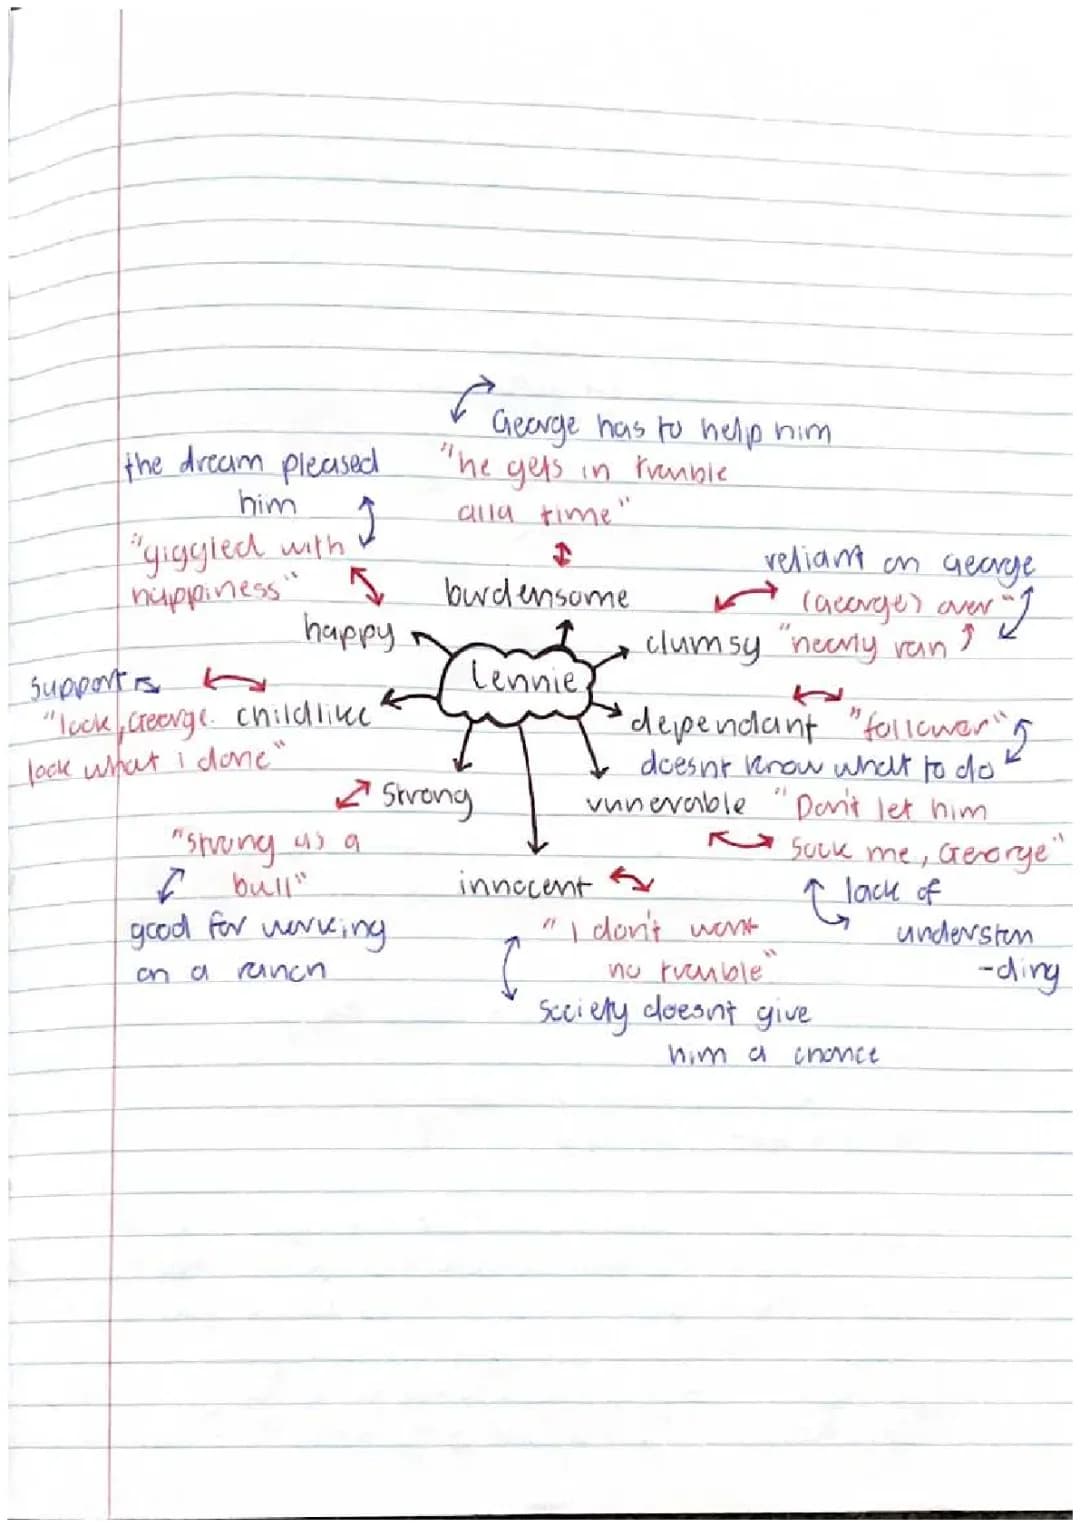 George has to help him
"he gets in trouble
alla time"
the dream pleased
him
"giggled with
happiness"
burdensome
happy
reliant on George
(George) over"
clumsy "nearly ran
Lennie
support
"look, George. childlike
look what i done"
dependant "follower"
doesnt know what to do
strong
vunerable "Don't let him
sock me, George"
"strong as a
bull"
innocent
lack of
understan
-ding
good for working
on a ranch
"I don't want
no trouble"
society doesnt give
him a chance